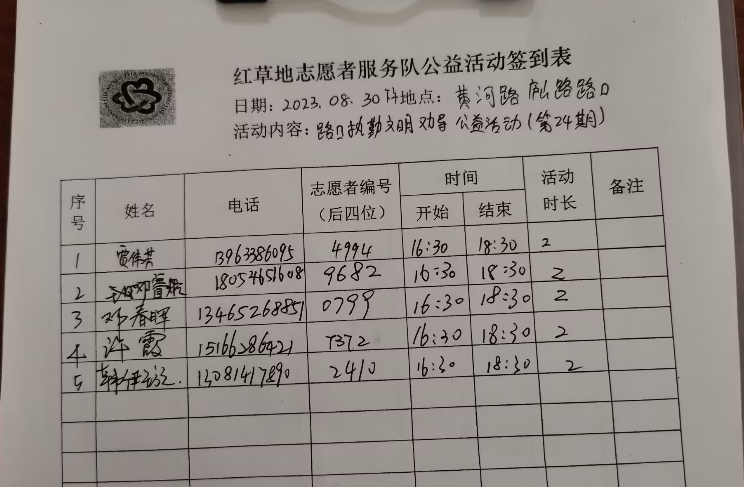 红草地志愿者服务队公益活动签到表
日期：2023.08.30 地点：黄河路 路路口
活动内容：路口执勤文明劝导公益活动（第24期）
序号 姓名 电话 志愿者编号（后四位） 时间 开始 结束 活动时长 备注
1 13963386095 4994 16:30 18:30 2
2 18054651608 9682 16:30 18:30 2
3 邓春晖 13465268851 0799 16:30 18:30 2
4 许霞 15166286421 7372 16:30 18:30 2
5 13081417890 2410 16:30 18:30 2